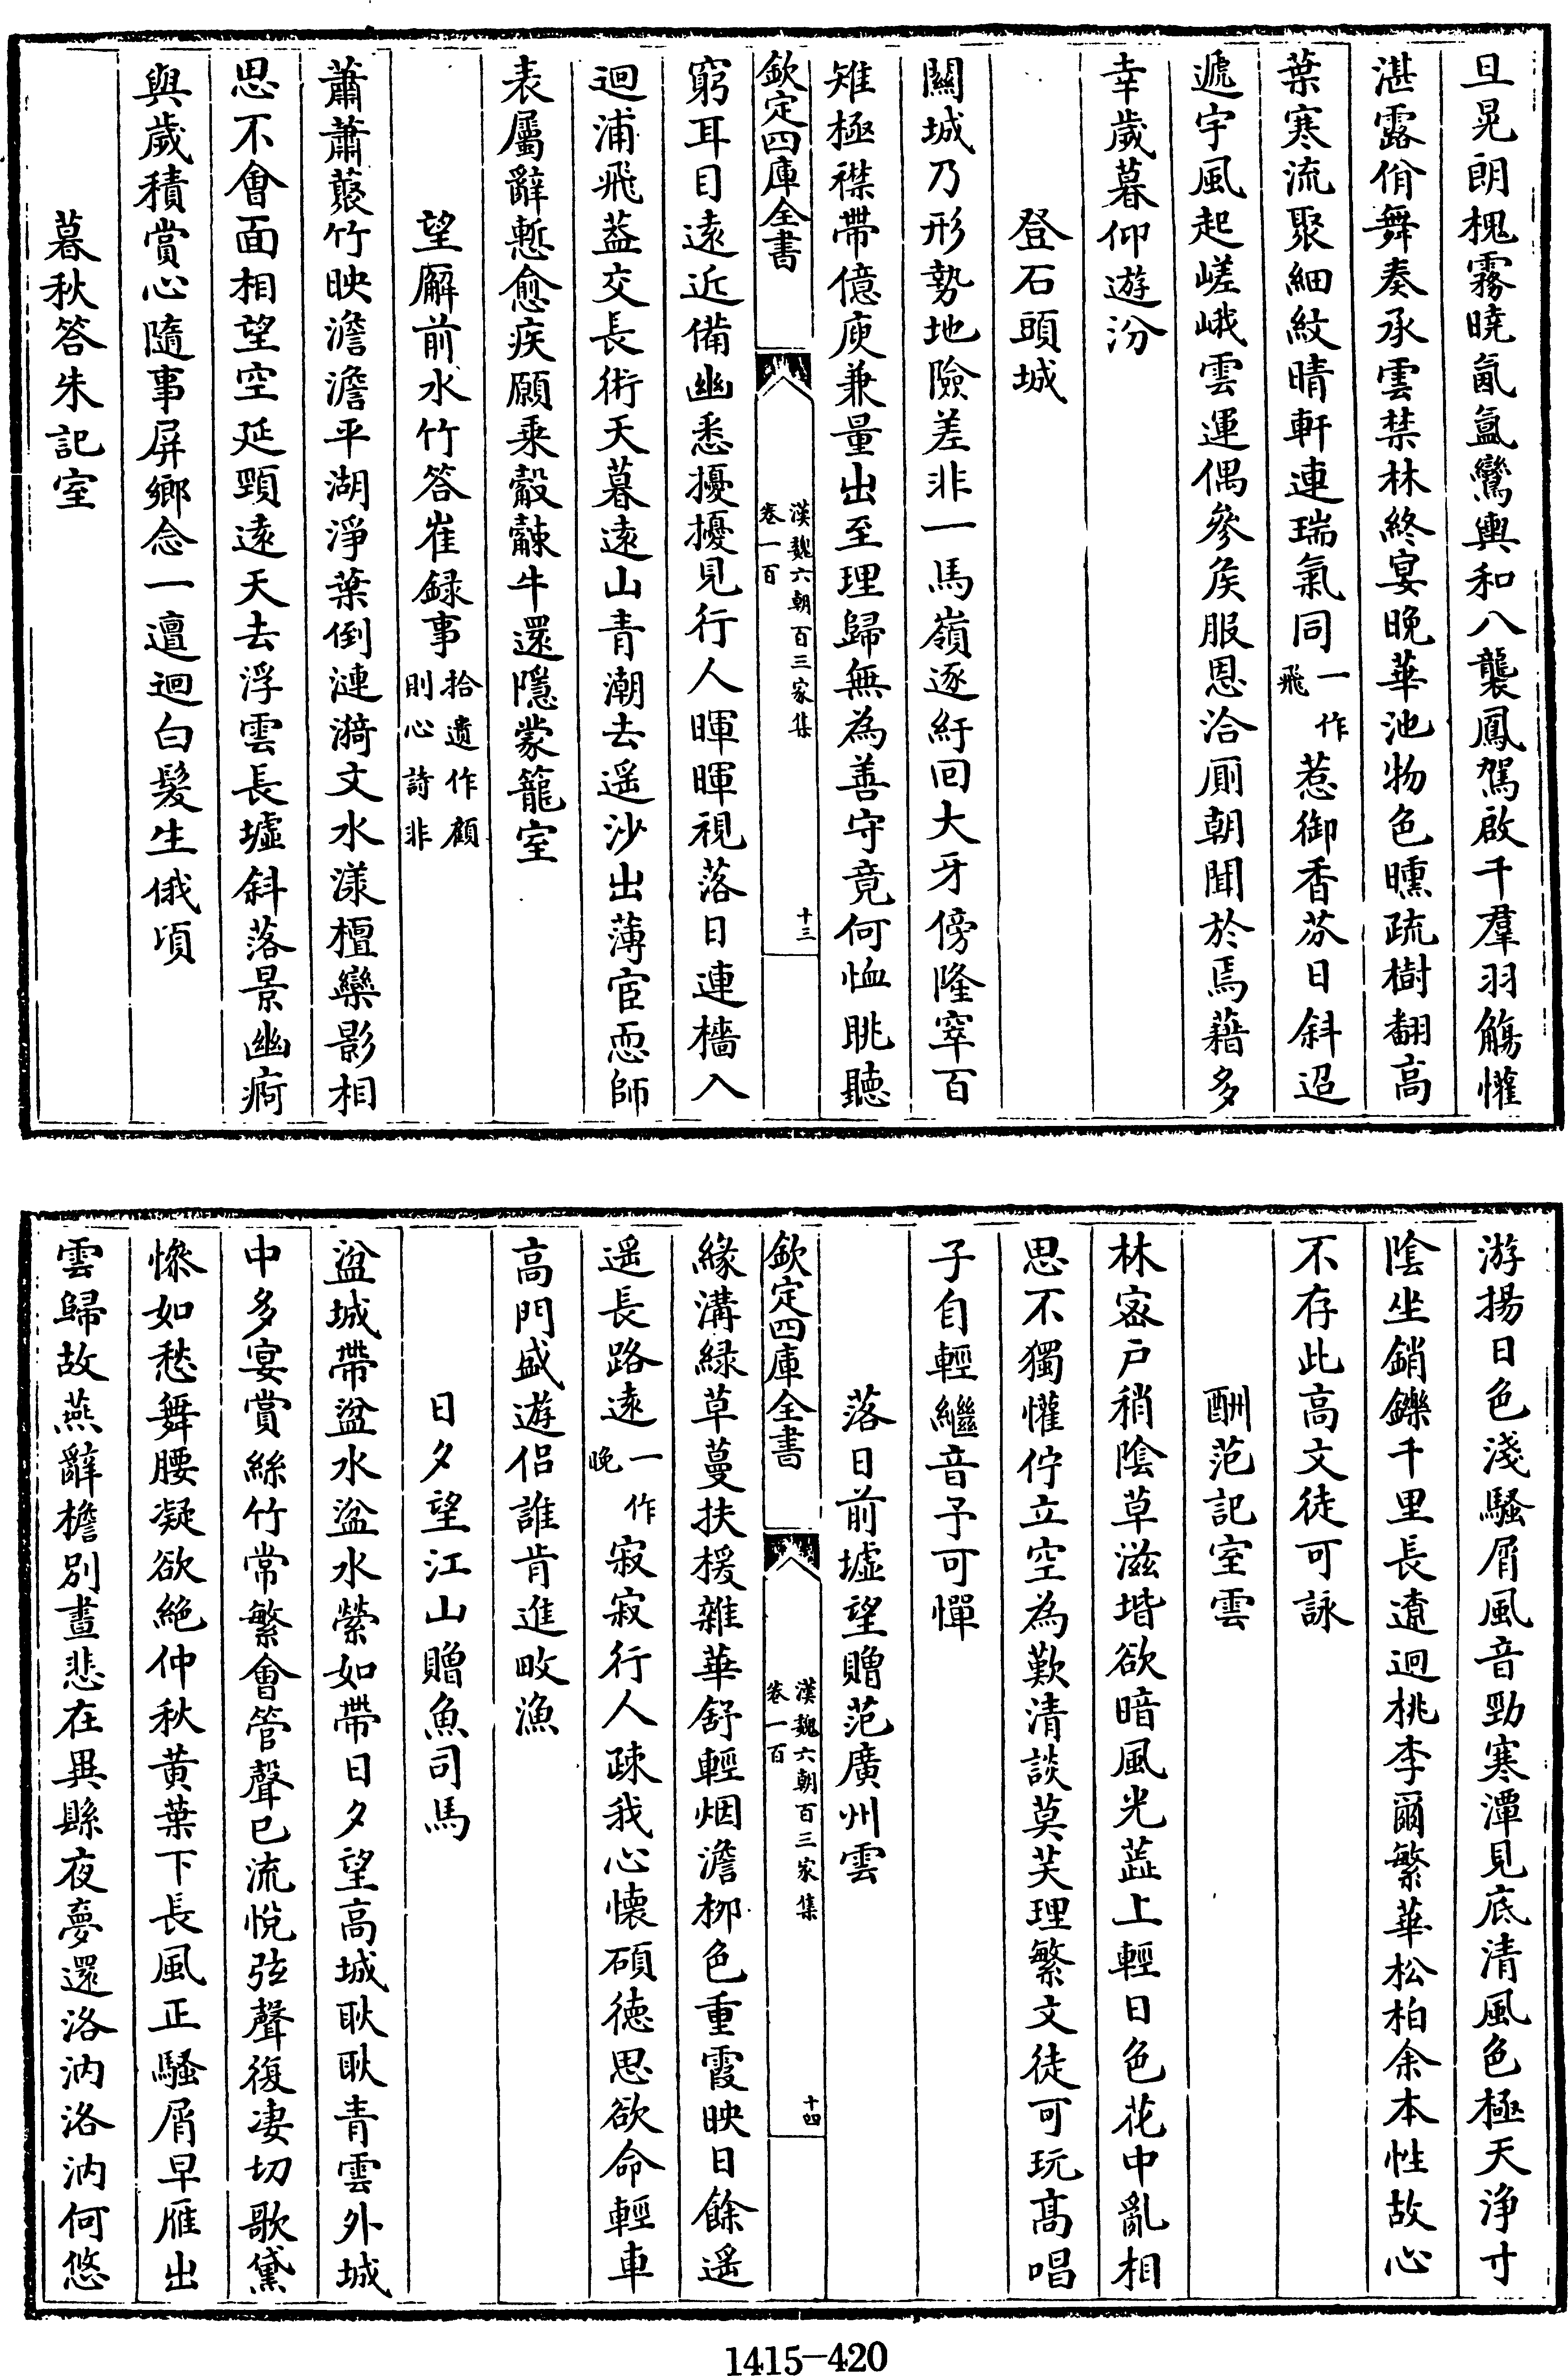 旦晃朗槐霧曉氤氳鸞輿和八襲鳳駕啟千羣羽觴懽
湛露佾舞奏承雲禁林終宴晚華池物色曛疏樹翻高
葉寒流聚細紋晴軒連瑞氣同一作飛惹御香芬日斜迢
遞宇風起嵯峨雲運偶參侯服恩洽厠朝聞於焉藉多
幸歲暮仰遊汾
登石頭城
關城乃形勢地險差非一馬嶺逐紆回犬牙傍隆窣百
雉極襟帶億庾兼量出至理歸無為善守竟何恤眺聽
欽定四庫全書
漢魏六朝百三家集
卷一百
十三
窮耳目遠近備幽悉擾擾見行人暉暉視落日連檣入
迴浦飛葢交長術天暮遠山青潮去遥沙出薄宦恧師
表屬辭慙愈疾願乘觳觫牛還隱蒙籠室
望廨前水竹答崔録事拾遺作顧則心詩非
蕭蕭藂竹映澹澹平湖淨葉倒漣漪文水漾檀欒影相
思不會面相望空延頸遠天去浮雲長墟斜落景幽痾
與歲積賞心隨事屏鄉念一邅迴白髮生俄頃
暮秋答朱記室
游揚日色淺騷屑風音勁寒潭見底清風色極天浄寸
陰坐銷鑠千里長遼迥桃李爾繁華松柏余本性故心
不存此高文徒可詠
酬范記室雲
林宻户稍陰草滋堦欲暗風光蘂上輕日色花中亂相
思不獨懽佇立空為歎清談莫共理繁文徒可玩高唱
子自輕繼音予可憚
落日前墟望贈范廣州雲
欽定四庫全書
漢魏六朝百三家集
卷一百
十四
緣溝緑草蔓扶楥雜華舒輕烟澹栁色重霞映日餘遥
遥長路遠一作晚寂寂行人疎我心懷碩徳思欲命輕車
高門盛遊侣誰肯進畋漁
日夕望江山贈魚司馬
盆城帶盆水盆水縈如帶日夕望高城耿耿青雲外城
中多宴賞絲竹常繁會管聲已流悅弦聲復凄切歌黛
慘如愁舞腰凝欲絶仲秋黄葉下長風正騷屑早雁出
雲歸故燕辭檐別晝悲在異縣夜夢還洛汭洛汭何悠
1415-420